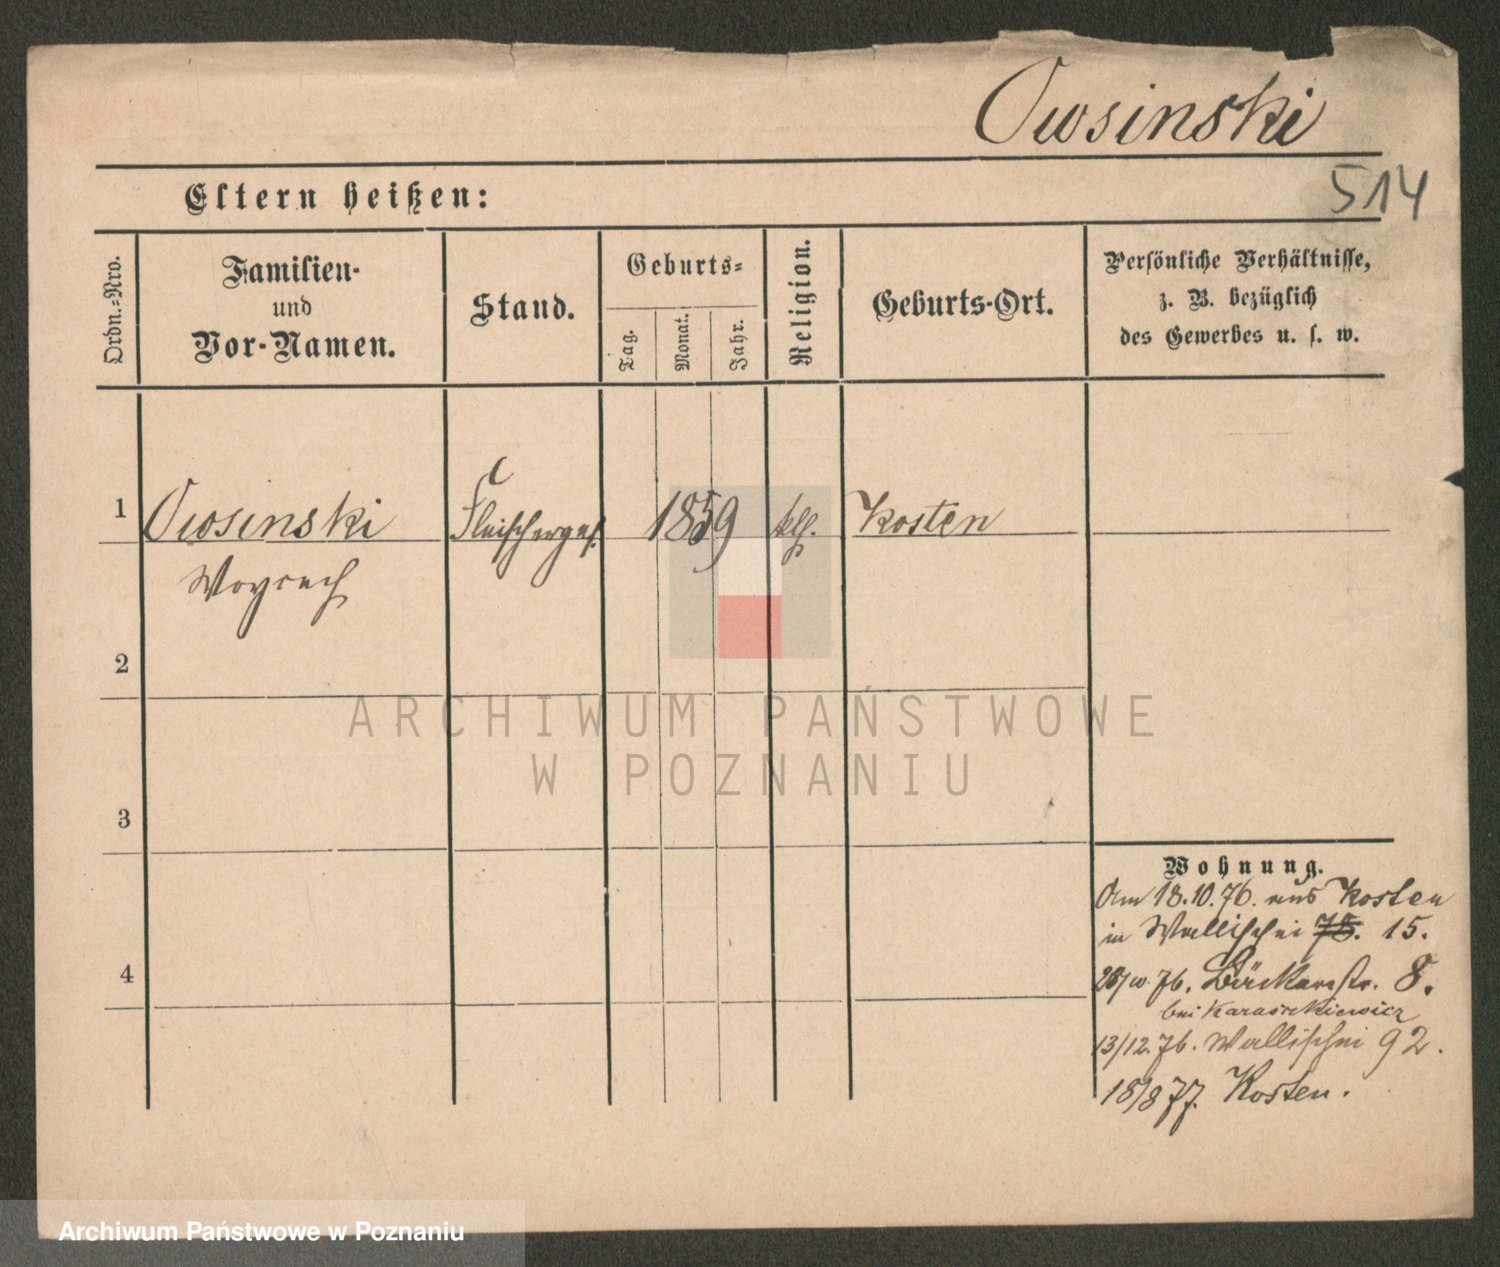 Owsinski
514
Eltern heißen:
Ordn.-Nro.
Familien-
und
Vor-Namen.
Stand.
Geburts-
Tag.
Monat.
Jahr.
Religion.
Geburts-Ort.
Persönliche Verhältnisse,
z. B. bezüglich
des Gewerbes u. s. w.
1 Owsinski Fleischerges. 1859 kth. Kosten
Woycech
2
3
4
Wohnung.
Am 18.10.76. aus Kosten
in Wallischei 78. 15.
28/10.76. Bäckerstr. 8.
bei Karaśkiewicz
13/12.76. Wallischei 92.
18/8 77. Kosten.
ARCHIWUM PAŃSTWOWE
W POZNANIU
Archiwum Państwowe w Poznaniu